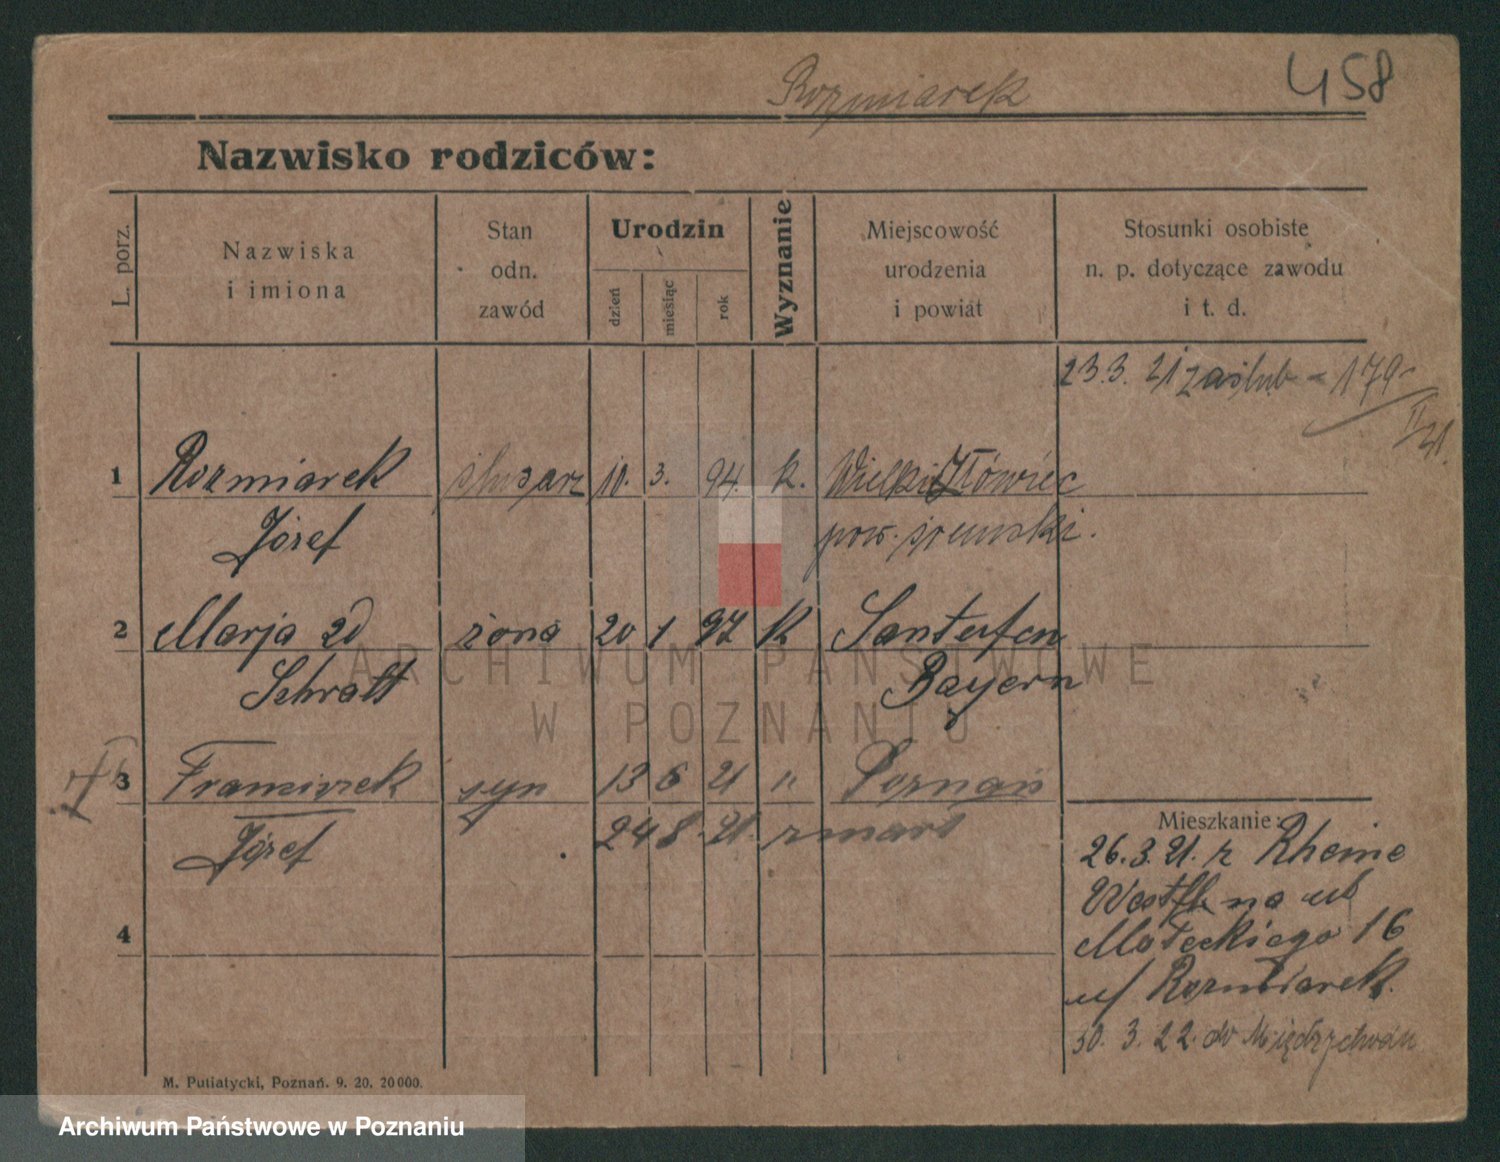 Rozmiarek
458
Nazwisko rodziców:
L. porz.
Nazwiska
i imiona
Stan
odn.
zawód
Urodzin
dzień
miesiąc
rok
Wyznanie
Miejscowość
urodzenia
i powiat
Stosunki osobiste
n. p. dotyczące zawodu
i t. d.
23.3.21 zaślub - 179
II/21.
1 Rozmiarek ślusarz 10. 3. 94. k. Wielki
Józef pow.
2 Marja zd żona 20 1 97 k
Schratt Bayern
3 Franciszek syn 13 6 21 " Poznań
Józef 24 8 21 zmarł
4
Mieszkanie:
26.3.21. z Rheine
Westf. na ul
Małeckiego 16
u/ Rozmiarek.
30. 3. 22. do Międzychodu
M. Putiatycki, Poznań. 9. 20. 20 000.
ARCHIWUM PAŃSTWOWE
W POZNANIU
Archiwum Państwowe w Poznaniu